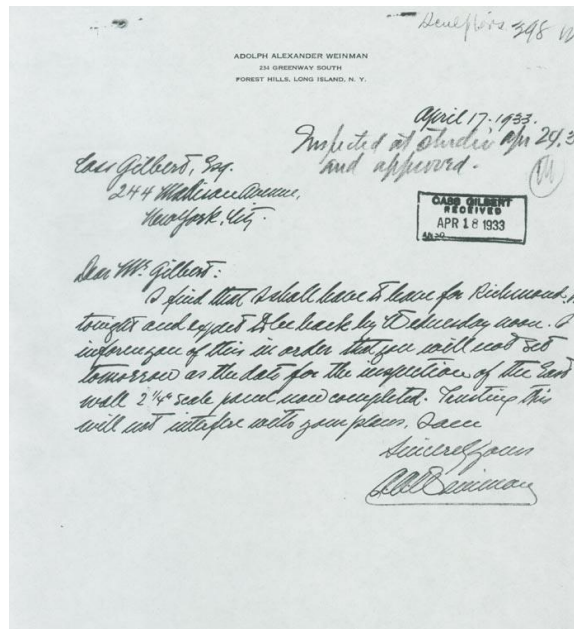 Sculptors. 398
ADOLPH ALEXANDER WEINMAN
234 GREENWAY SOUTH
FOREST HILLS, LONG ISLAND, N. Y.
April 17. 1933.
Inspected at studio Apr 24. 3
and approved.
Cass Gilbert, Esq.
244 Madison Avenue,
New York, City.
CASS GILBERT
RECEIVED
APR 18 1933
Dear Mr. Gilbert:
I find that I shall have to leave for Richmond,
tonight and expect to be back by Wednesday noon. I
inform you of this in order that you will not set
tomorrow as the date for the inspection of the East
wall 2 1/4" scale panel now completed. Trusting this
will not interfere with your plans, I am
Sincerely yours
A A Weinman